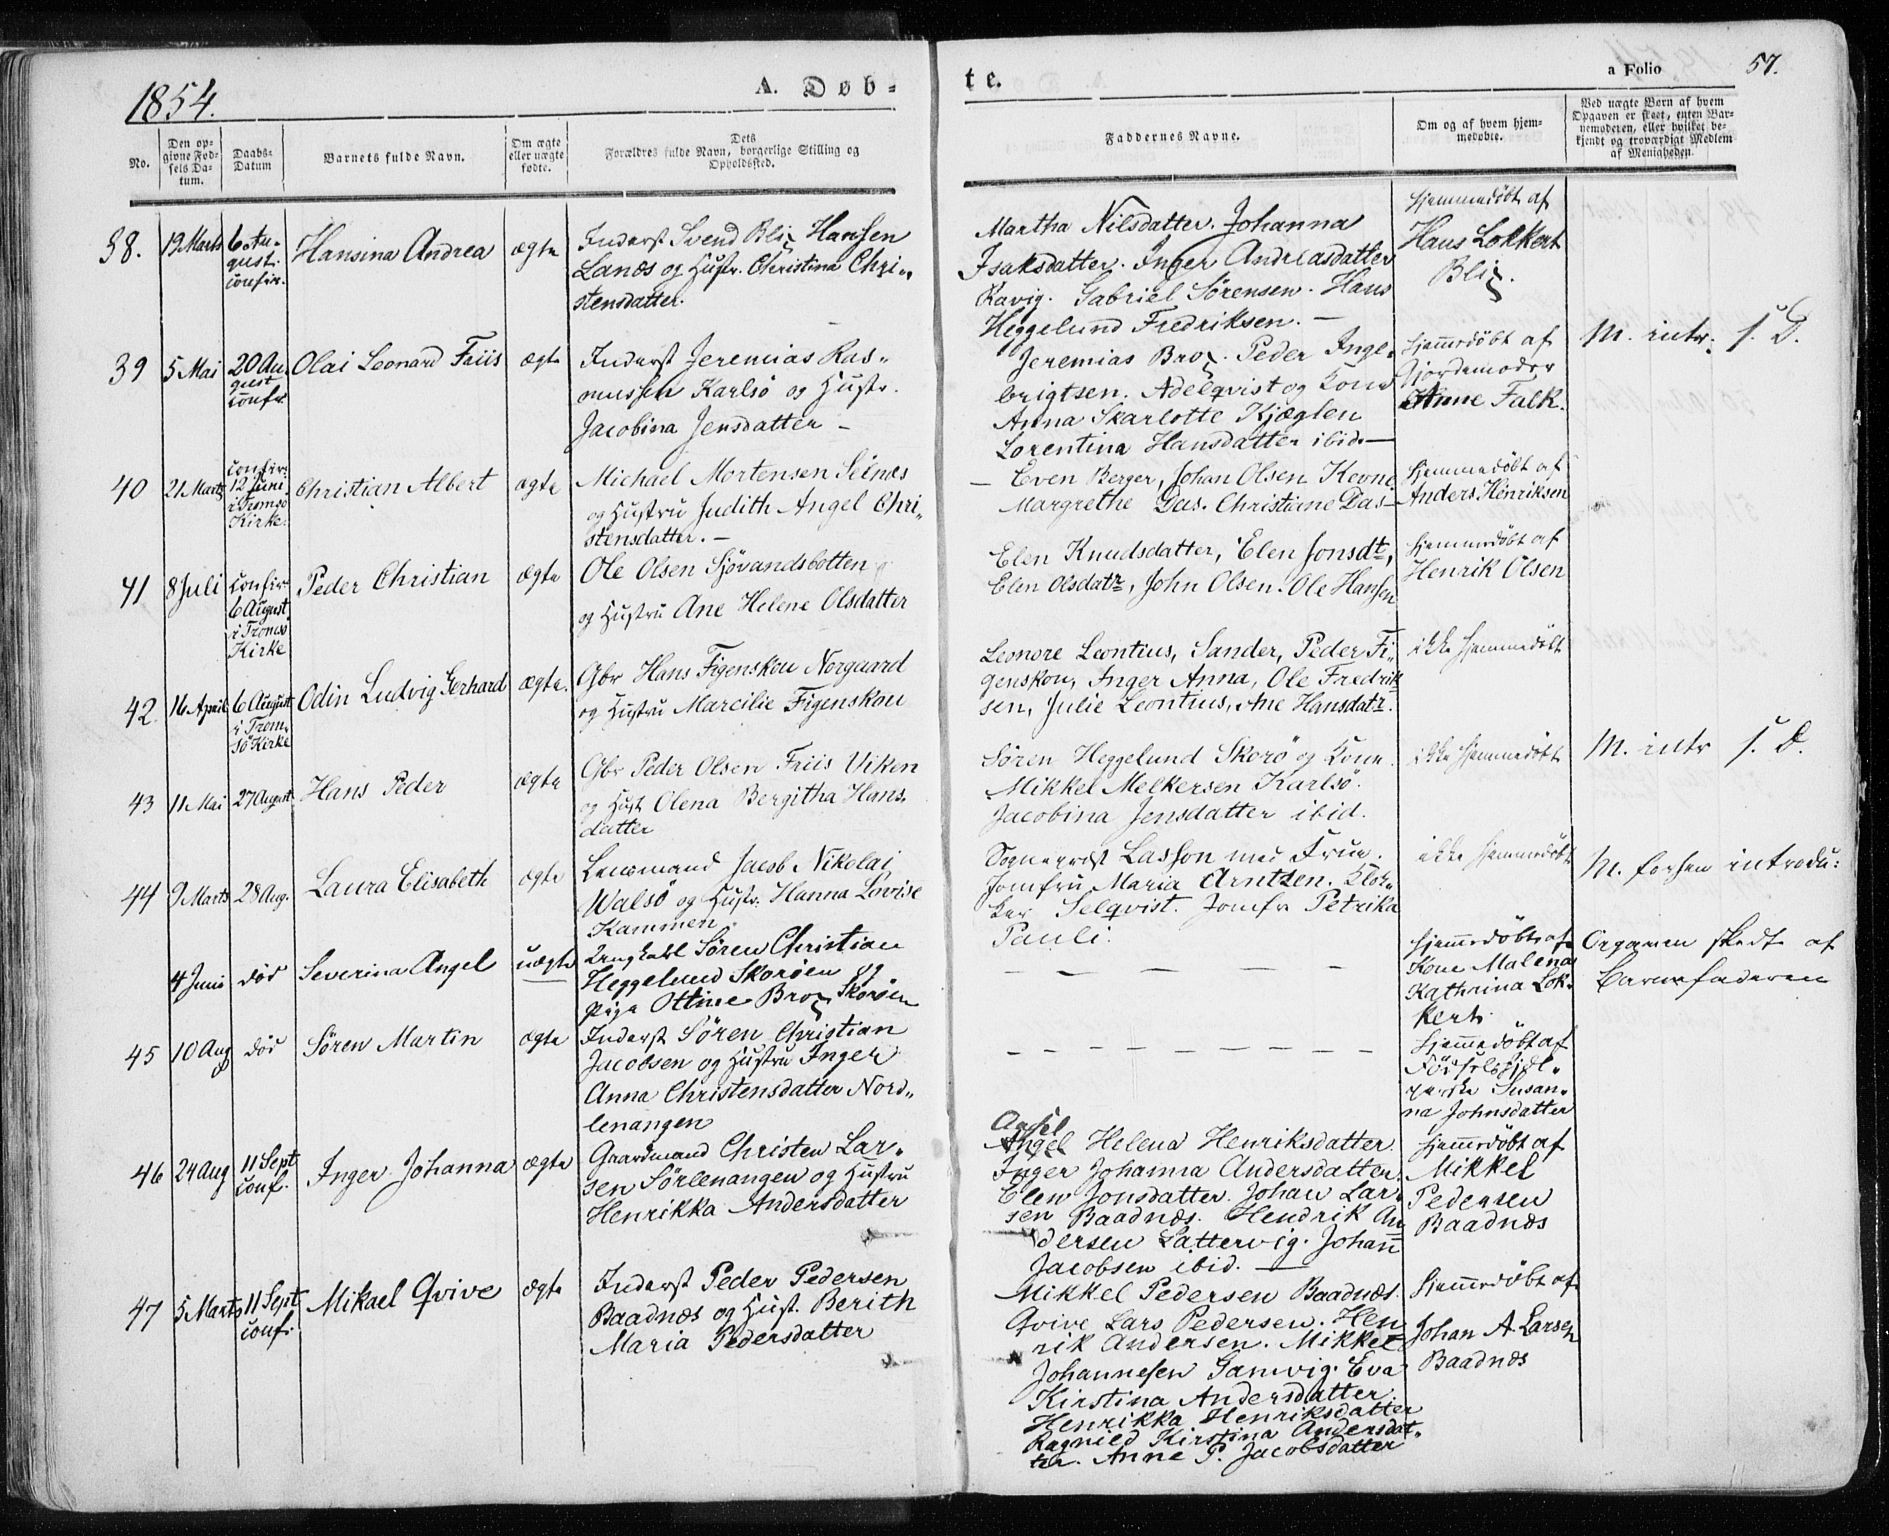 1854.
A. Døb-
te.
a Folio
57.
No.
Den op-
givne Fød-
sels Da-
tum.
Daabs-
Datum
Barnets fulde Navn.
Om ægte
eller uægte
fødte.
Dets
Forældres fulde Navn, borgerlige Stilling og
Opholdssted.
Faddernes Navne.
Om og af hvem hjem-
medøbte.
Ved uægte Børn af hvem
Opgaven er skeet, enten Bar-
nemoderen, eller hvilket be-
kjendt og troværdigt Medlem
af Menigheden.
38.
19 Marts
6 Au-
gust.
confir.
Hansina Andrea
ægte
Inderst Svend Blix Hansen
Lanæs og Hustr. Christina Chri-
stensdatter.
Martha Nilsdatter. Johanna
Isaksdatter. Inger Andreasdatter
Ravig. Gabriel Sørensen. Hans
Heggelund Fredriksen. —
Hjemmedøbt af
Hans Lokkert
Blix.
39
5 Mai
20 Au-
gust
confr.
Olai Leonard Friis
ægte
Inderst Jeremias Ras-
mussen Karlsö og Hustr.
Jacobina Jensdatter —
Jeremias Brox. Peder Inge-
brigtsen. Adelqvist og Kone
Anna Skarlotte Kjæglen
Lorentina Hansdatter ibid. —
Hjemmedøbt af
Gjordemoder
Anne Falk.
M. intr. s. D.
40
21 Marts
confir.
12 Juni
i Tromsö
Kirke.
Christian Albert
ægte
Michael Mortensen Seinæs
og Hustru Judith Angel Chri-
stensdatter. —
— Even Berger, Johan Olsen Kevne
Margrethe Das. Christine Das —
Hjemmedøbt af
Anders Henriksen
41
8 Juli
confir.
6 August
i Tromsö
Kirke
Peder Christian
ægte
Ole Olsen Sjövandsbotten
og Hustru Ane Helene Olsdatter
Elen Knudsdatter, Elen Jonsdt,
Elen Olsdatr, John Olsen. Ole Hansen
Hjemmedøbt af
Henrik Olsen
42.
16 April
6 August
i Trom-
sö Kirke
Odin Ludvig Gerhard
ægte.
Gbr Hans Figenskou Norgaard
og Hustru Marcilie Figenskou
Leonore Leontius, Sander, Peder Fi-
genskou, Inger Anna, Ole Fredrik
sen, Julie Leontius, Ane Hansdatr.
ikke hjemmedøbt
43
11 Mai
27 August
Hans Peder
ægte
Gbr Peder Olsen Friis Viken
og Hust Olena Bergitha Hans
datter
Søren Heggelund Skorö og Kone.
Mikkel Melkersen Karlsö.
Jacobina Jensdatter ibid.
ikke hjemmedøbt
M. intr s. D.
44
9 Marts
28 Aug.
Laura Elisabeth
ægte
Lensmand Jacob Nikolai
Walsö og Hustr. Hanna Lovise
Kammen
Sognepræst Lasson med Frue.
Jomfru Maria Arntzen. Klok-
ker Selqvist. Jomfr Petrika
Pauli.
ikke hjemmedøbt
M. forhen introdu:
4 Juni
død
Severina Angel
uægte
Ungkarl Sören Christian
Heggelund Skorøen og
Pige Ottine Brox Skorøen
— — — —
Hjemmedøbt af
Kone Malena
Kathrina Lok-
kert.
Opgaven skedt af
Barnefaderen
45
10 Aug
død
Sören Martin
ægte
Inderst Sören Christian
Jacobsen og Hustru Inger
Anna Christensdatter Nord-
lenangen
— — — — — — — — —
Hjemmedøbt af
Födselshjel-
perske Susan-
na Johnsdatter
46
24 Aug
11 Sept
conf.
Inger Johanna
ægte
Gaardmand Christen Lar-
sen Sörlenangen og Hustru
Henrikka Andersdatter
Axsel
Angel Helena Henriksdatter.
Inger Johanna Andersdatter.
Elen Jonsdatter. Johan Lar-
sen Baadnæs. Hendrik An
dersen Lattervig. Johan
Jacobsen ibid. —
Hjemmedøbt af
Mikkel
Pedersen
Baadnæs
47
5 Marts
11 Sept
conf.
Mikael Qvive
ægte
Inderst Peder Pedersen
Baadnæs og Hust. Berith
Maria Pedersdatter
Mikkel Pedersen Baadnæs.
Qvive Lars Pedersen. Hen
rik Andersen. Mikkel
Johannesen Gamvig. Eva
Kirstina Andersdatter.
Henrikka Henriksdatter
Ragnild Kirstina Andersdat-
ter. Anne P. Jacobsdatter
Hjemmedøbt af
Johan A Larsen
Baadnæs